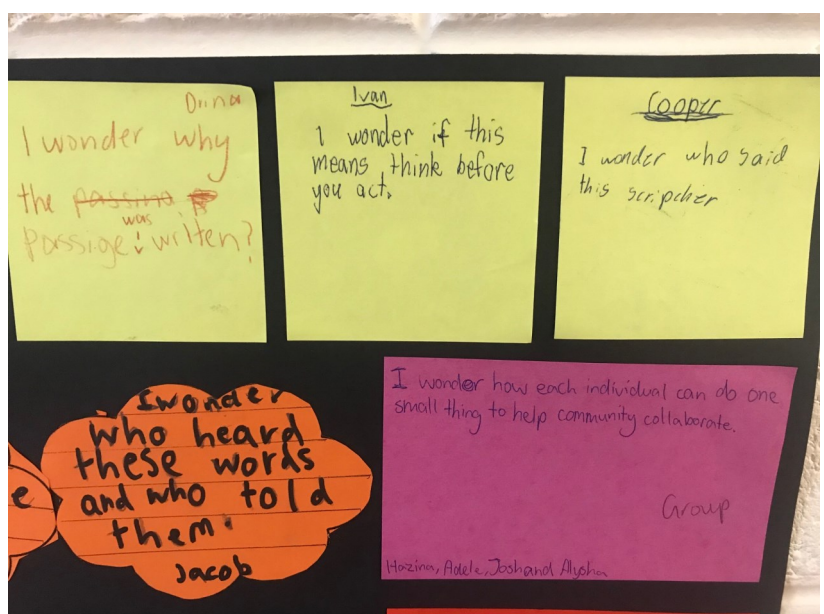 Diina
I wonder why
the passino
was
passige writen?
Ivan
I wonder if this
means think before
you act.
Cooper
I wonder who said
this scripcher
I wonder
who heard
these words
and who told
them.
Jacob
e
I wonder how each individual can do one
small thing to help community collaborate.
Group
Hazina, Adele, Josh and Alysha